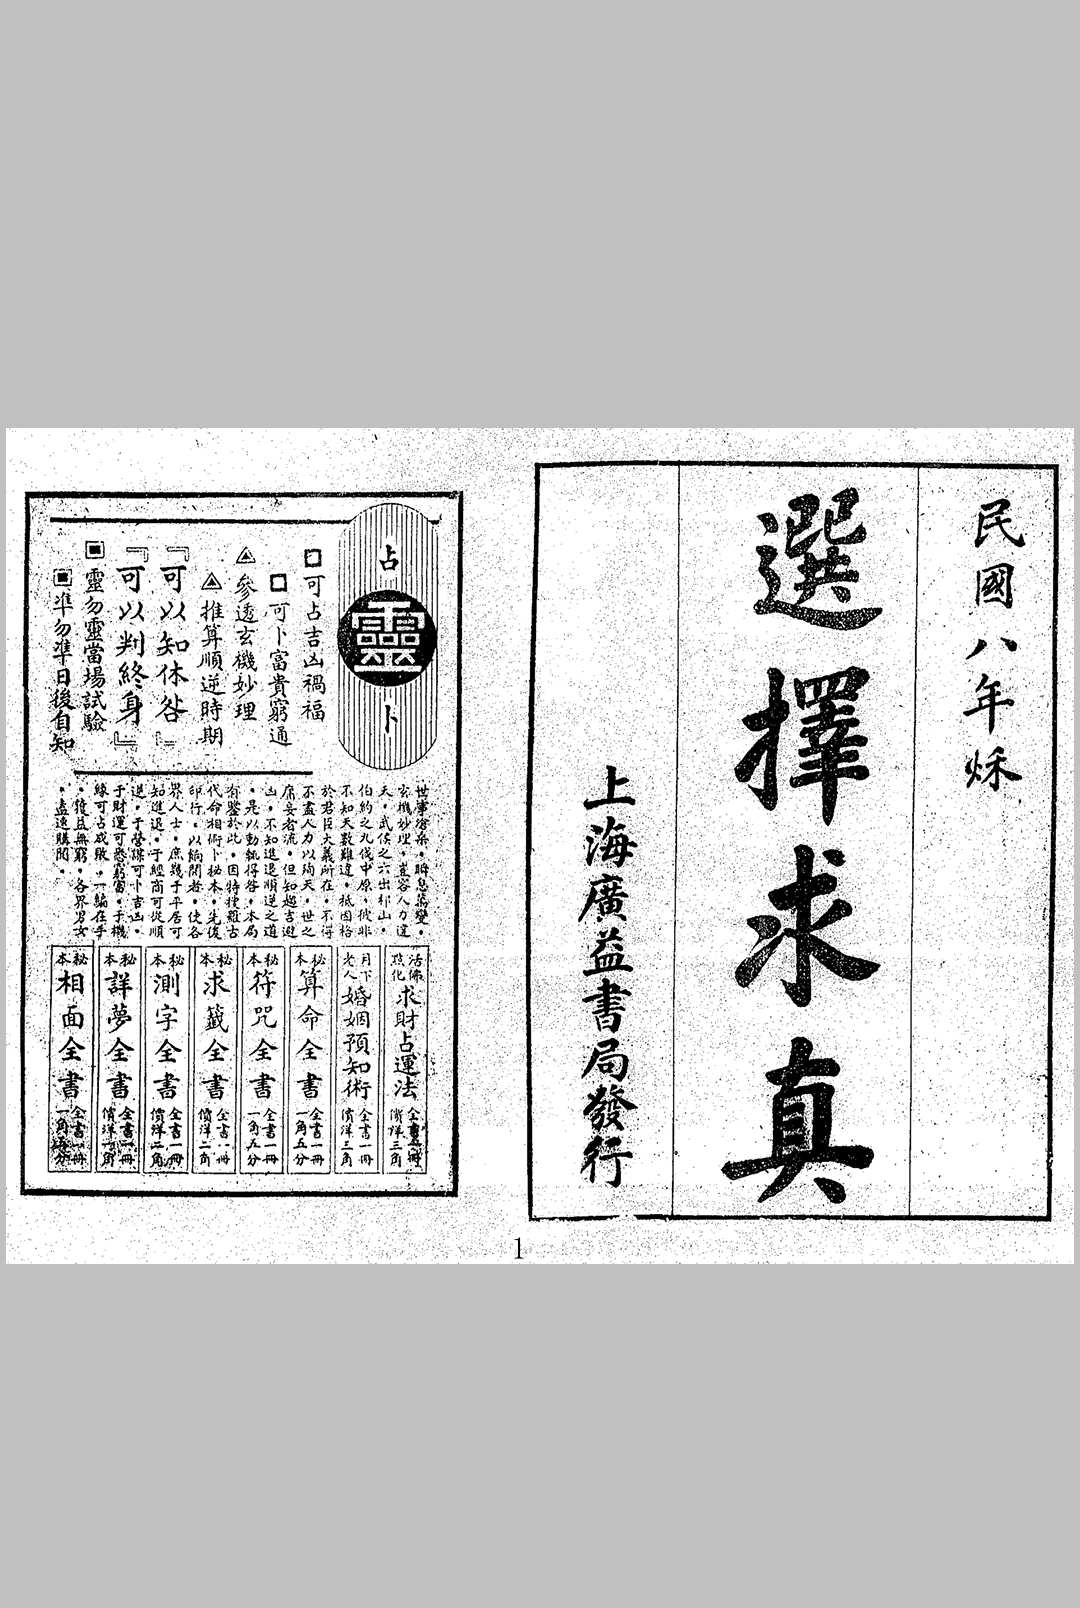 民國八年穌
選擇求真
上海廣益書局發行
占靈卜
可占吉凶禍福
可卜富貴窮通
參透玄機妙理
推算順逆時期
『可以知休咎』
『可以判終身』
靈勿靈當場試驗
準勿準日後自知
世事滄桑。瞬息萬變。
玄機妙理。豈容人力違
天。武侯之六出祁山。
伯約之九伐中原。彼非
不知天數難違。祇因格
於君臣大義所在。不得
不盡人力以殉天。世之
庸妄者流。但知趨吉避
凶。不知進退順逆之道
。是以動輒得咎。本局
有鑒於此。因特搜羅古
代命相術卜秘本。先後
印行。以餉閱者。使各
界人士。庶幾于平居可
知進退。于經商可從順
逆。于營謀可卜吉凶。
于財運可悉窮富。于機
緣可占成敗。一編在手
。獲益無窮。各界男女
。盍速購閱。
活佛點化 求財占運法 全書一冊 價洋三角
月下老人 婚姻預知術 全書一冊 價洋三角
秘本 算命全書 全書一冊 一角五分
秘本 符咒全書 全書一冊 一角五分
秘本 求籤全書 全書一冊 價洋二角
秘本 測字全書 全書一冊 價洋二角
秘本 詳夢全書 全書一冊 價洋一角
秘本 相面全書 全書一冊 一角五分
1